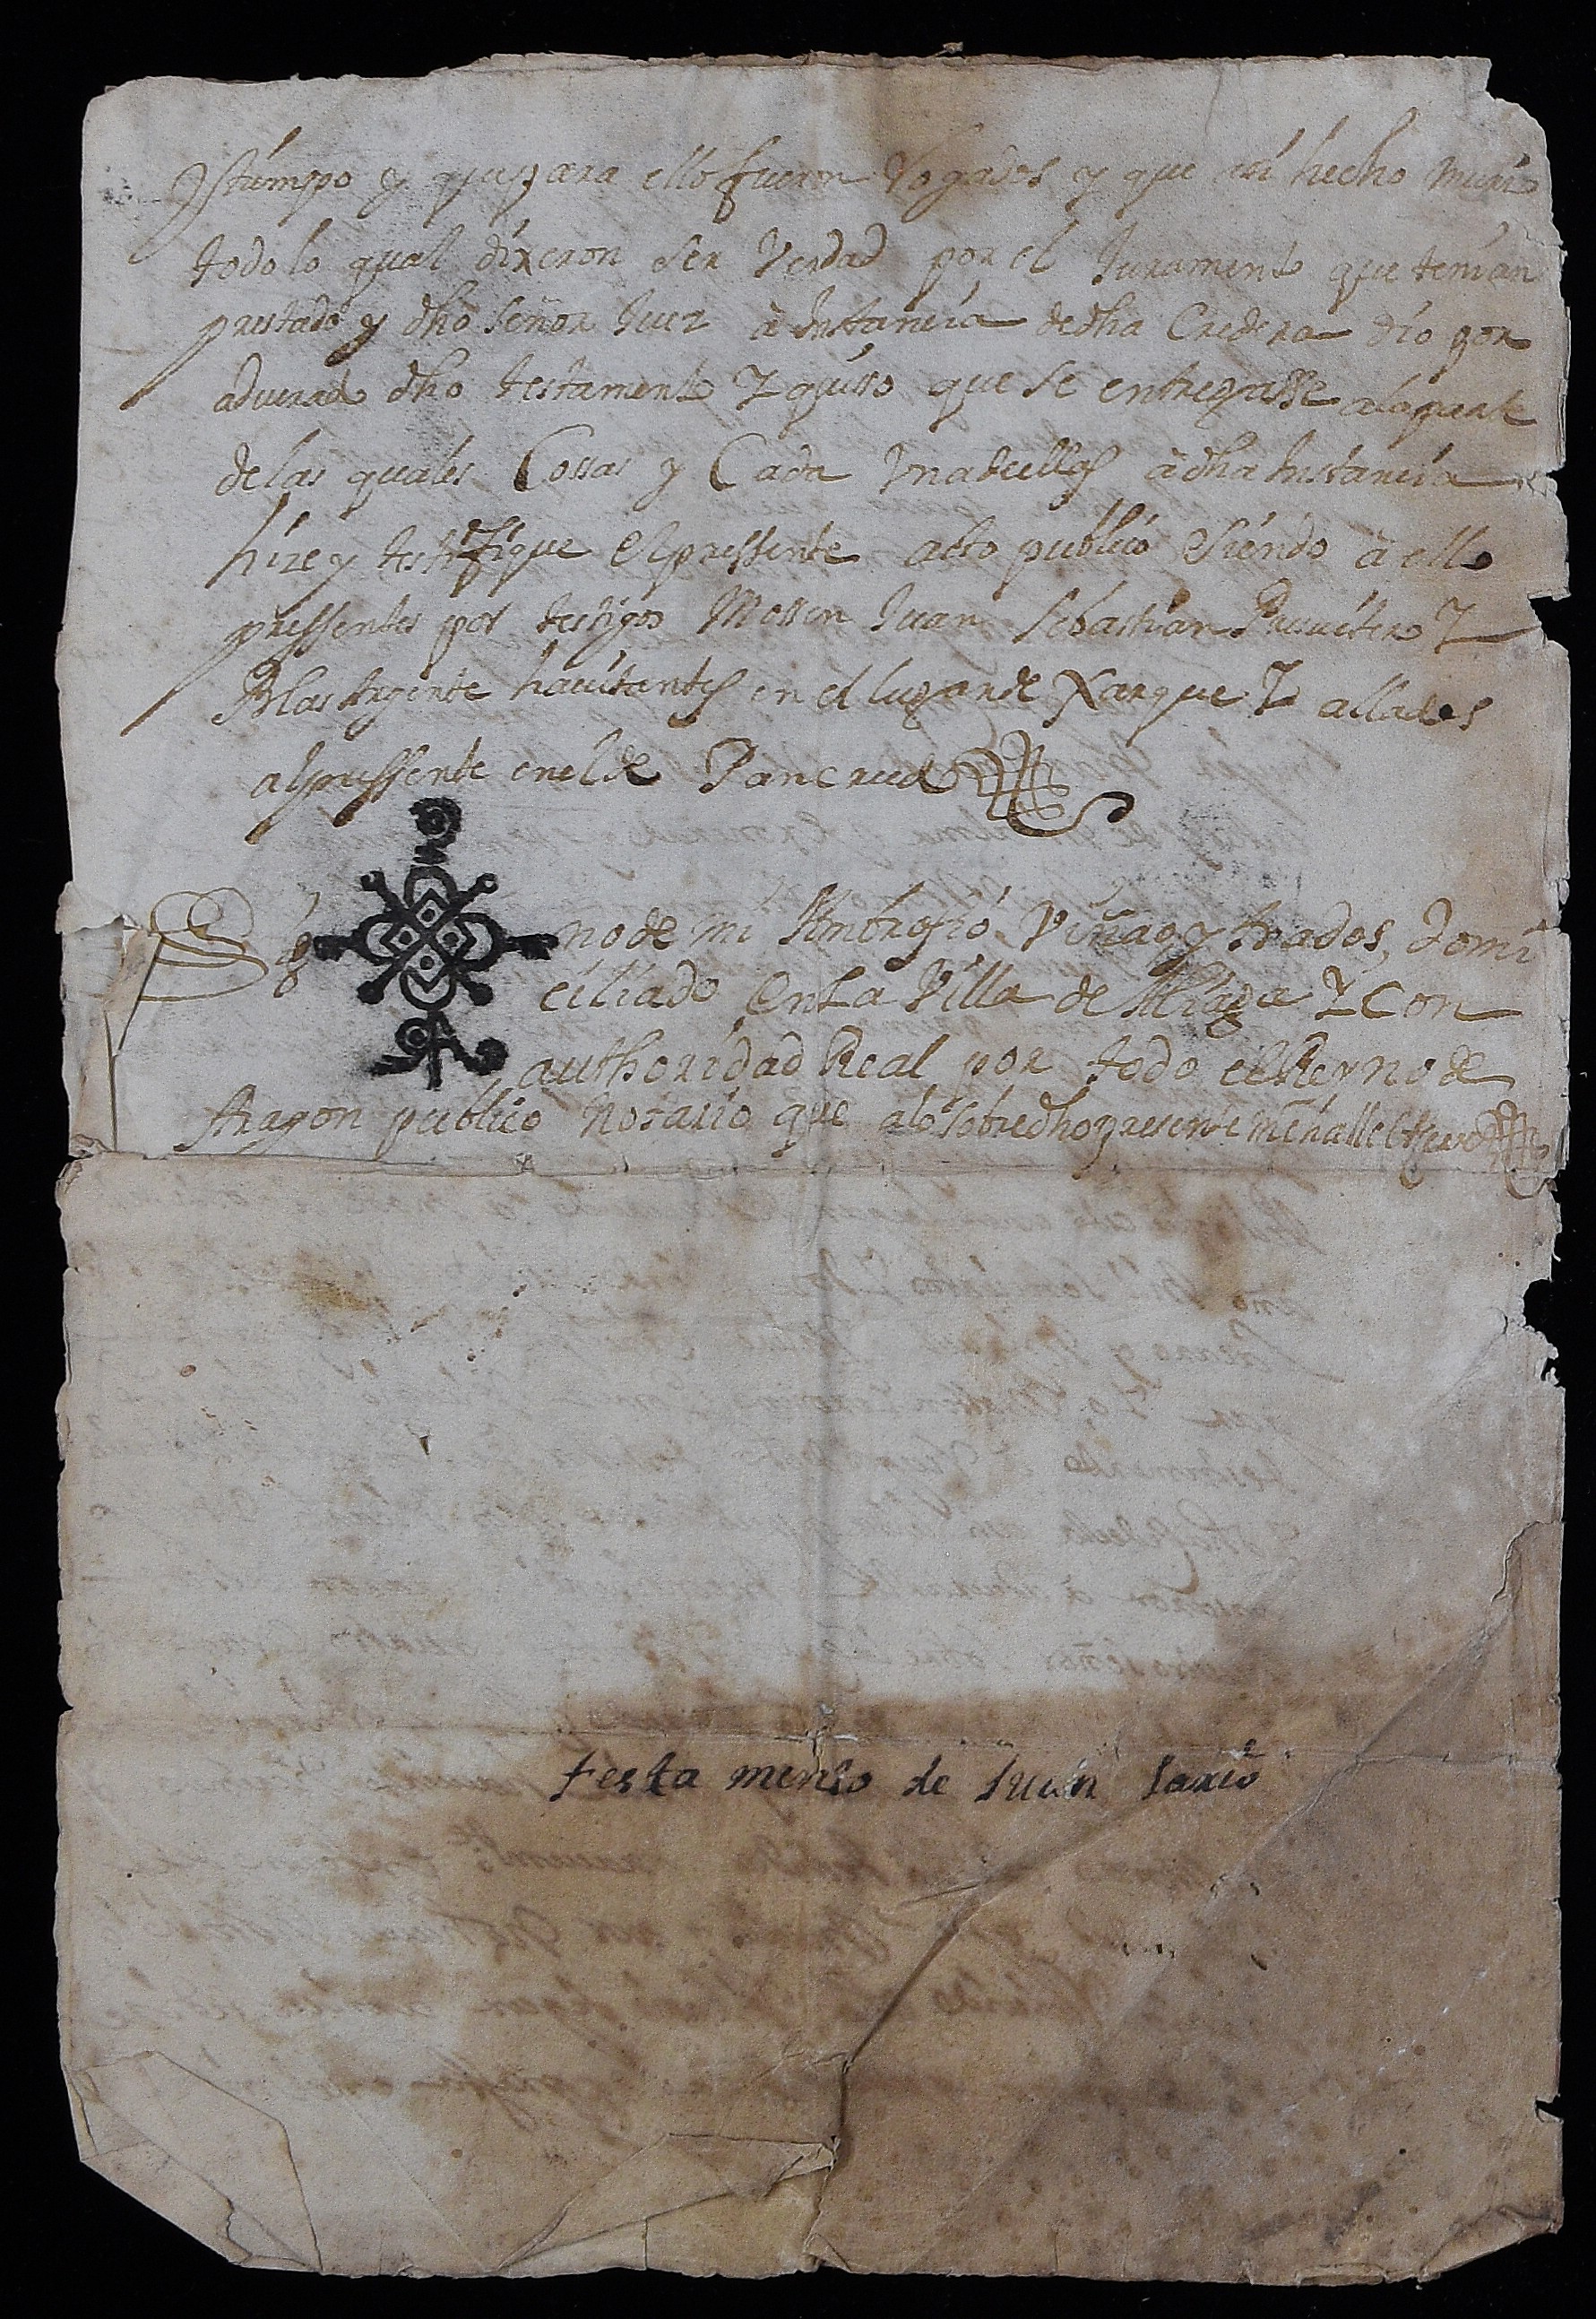 y tiempo y q̃ para ello fueron Rogados y que assi hecho murio
todo lo qual dixeron ser Verdad por el Juramento que tenian
prestado y dho Señor Juez à Instancia de dha Credera dio por
adverado dho testamento Z quisso que se entregasse a la parte
de las quales Cossas y Cada Una de ellas à dha Instancia
hize y testifique el pressente acto publico Siendo à ello
pressentes por testigos Mossen Juan Sebastian Presvitero Z
Blas Argente havitantes en el lugar de Xarque Z allados
al pressente en el de Pancrud
Sig no de mi Ambrosio Viñao y Arados, domi
ciliado en La Villa de Aliaga Z Con
authoridad Real por todo el Reyno de
Aragon publico Notario que a lo sobredho presente me halle et cerre
testamento de Juan